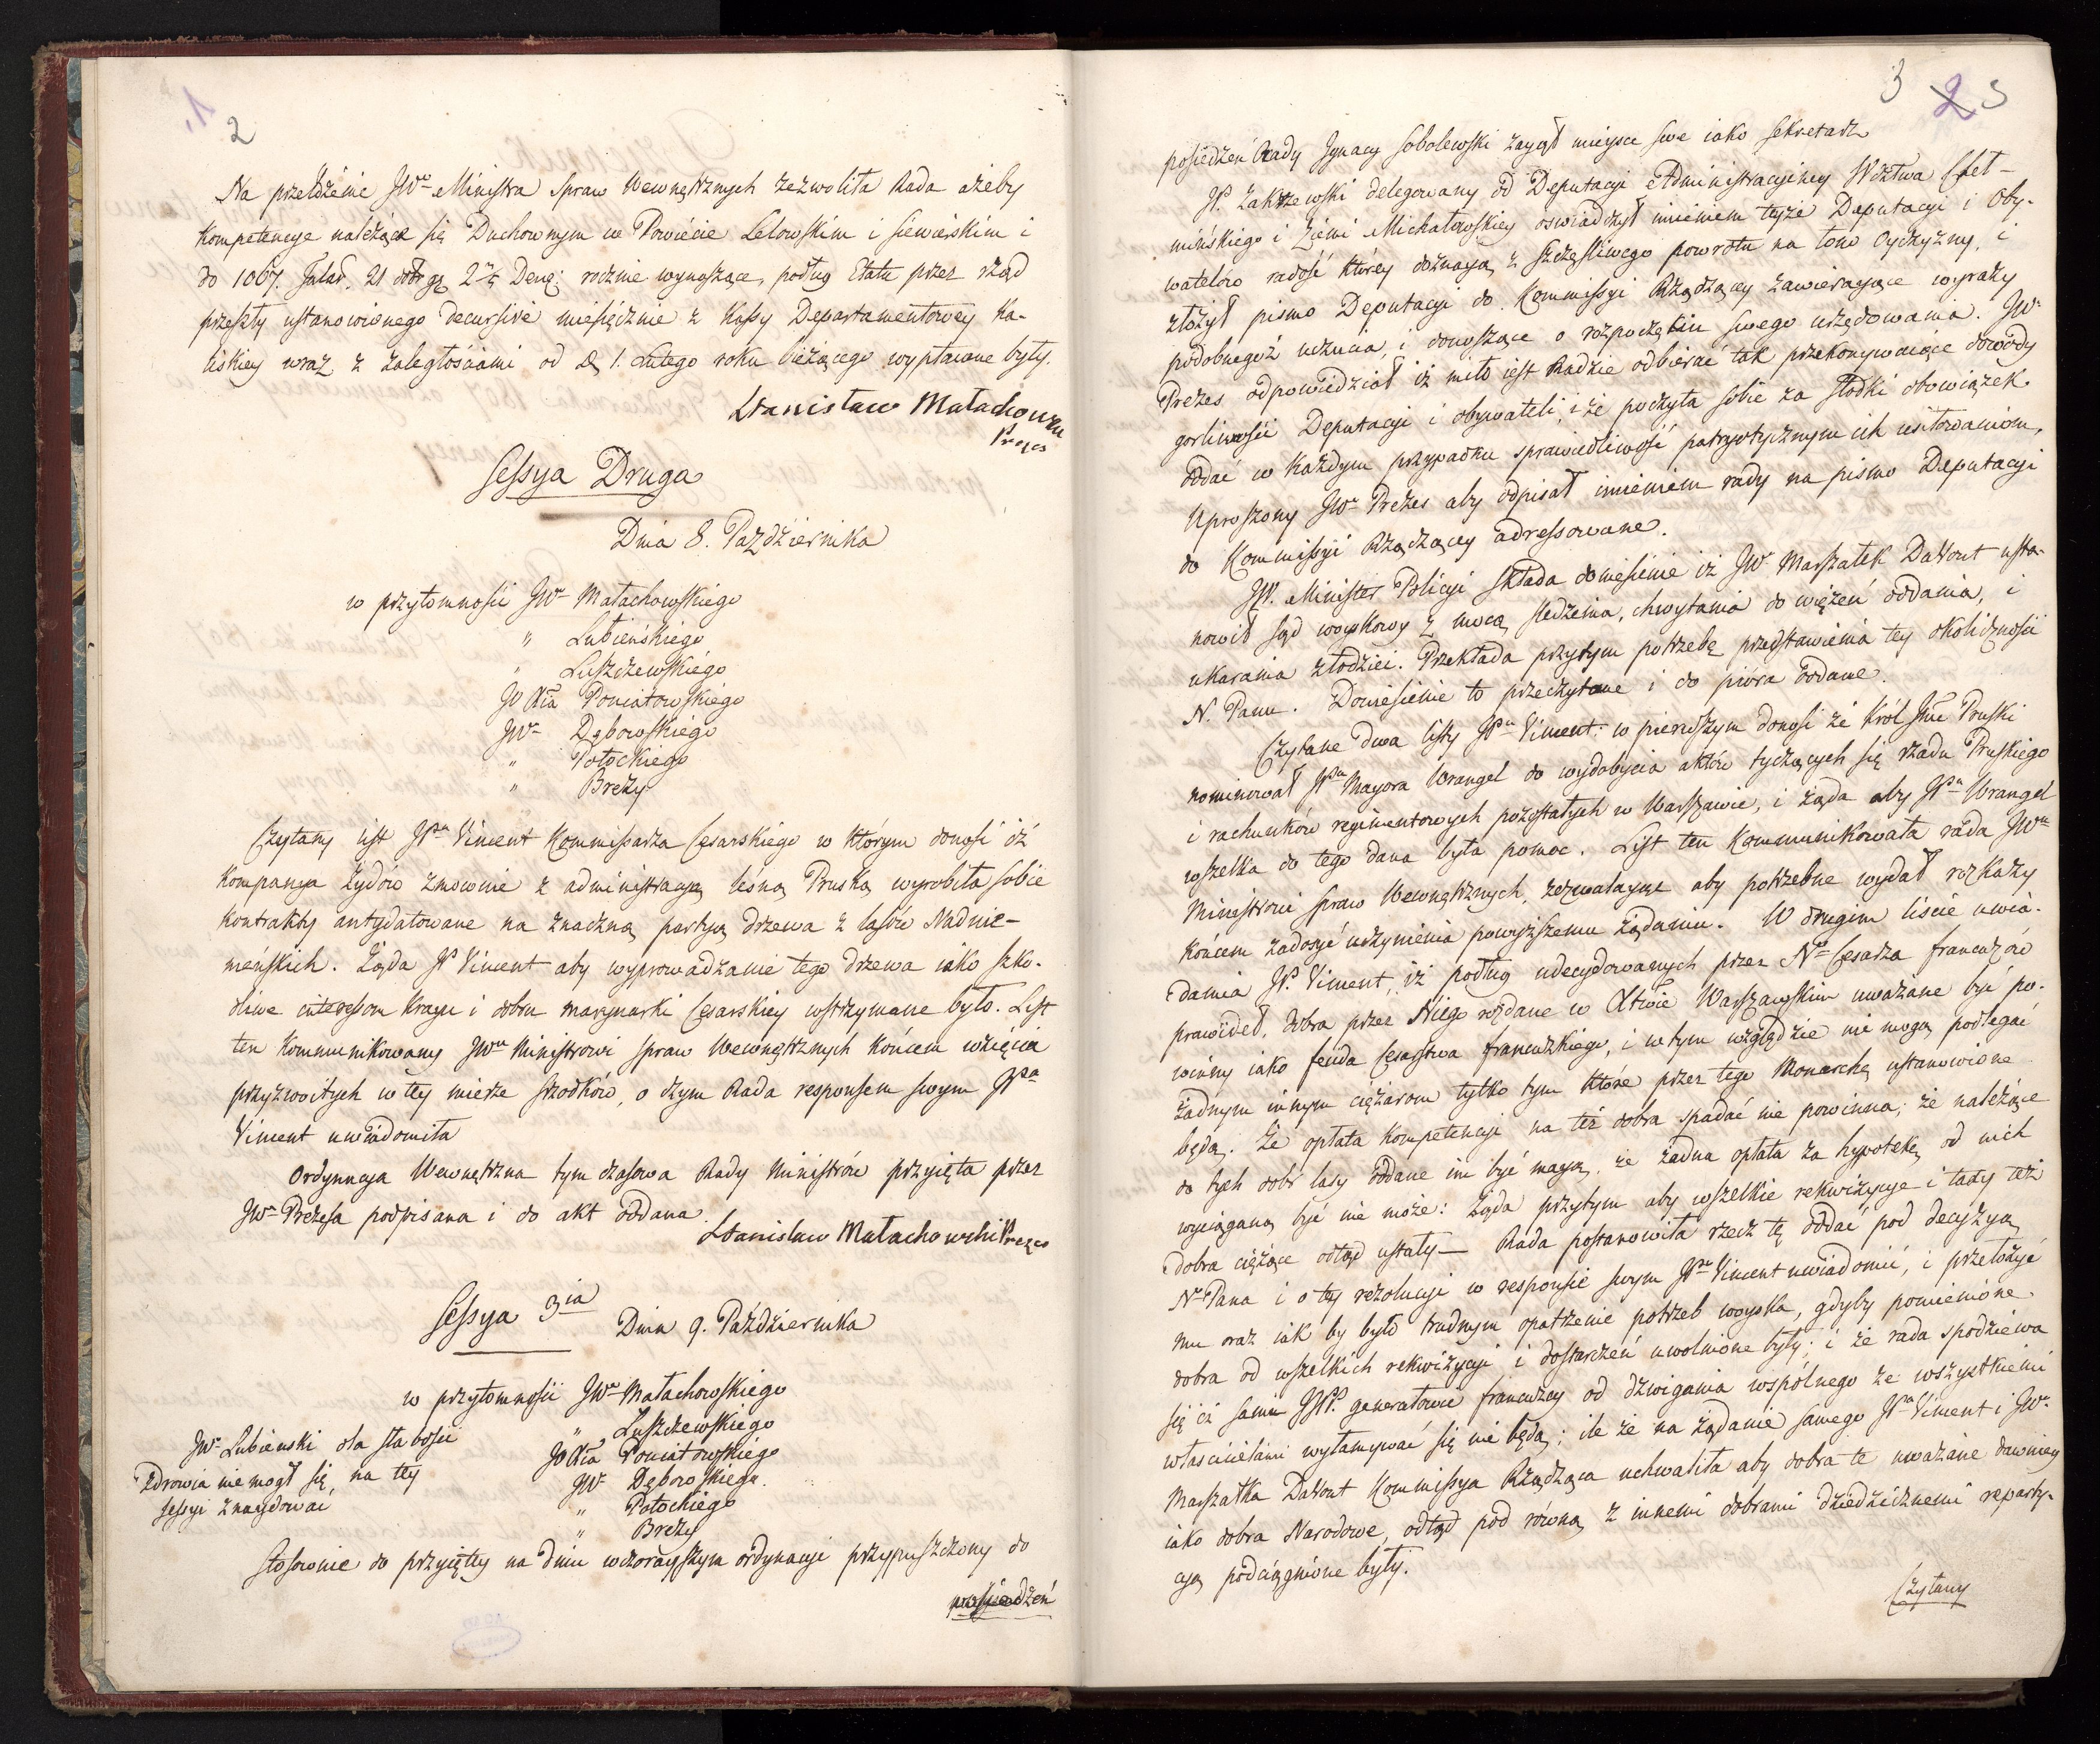 2
Na przełożenie JWo Ministra spraw Wewnętrznych zezwoliła Rada ażeby
kompetencye należące się Duchownym w Powiecie Lelowskim i Siewierskim i
do 1067. Talar. 21 dobr gr 2 Den: rocznie wynoszące, podług Etatu przez rząd
przeszły ustanowionego decursive miesięcznie z Kassy Departamentowey Ka-
liskiey wraz z zaległościami od d. 1. Lutego roku bieżącego wypłacone były.
Stanisław Małachowski
Prezes
Sessya Druga
Dnia 8. Października
w przytomności JWo Małachowskiego
" Łubieńskiego
" Łuszczewskiego
JO Xcia Poniatowskiego
JWo Dąbrowskiego
" Potockiego
" Brezy
Czytany list JPa Vincent Kommissarza Cesarskiego w którym donosi iż
kompanya Żydów zmownie z administracyą leśną Pruską wyrobiła sobie
kontrakty antydatowane na znaczną partyą drzewa z lasów Nadnie-
meńskich. Żąda JP Vincent aby wyprowadzanie tego drzewa iako szko-
dliwe interessom kraju i dobru marynarki Cesarskiey wstrzymane było. List
ten kommunikowany JWu Ministrowi spraw Wewnętrznych końcem wzięcia
przyzwoitych w tey mierze srzodków, o czym Rada responsem swym JPa
Vincent uwiadomiła
Ordynacya Wewnętrzna tym czasowa Rady Ministrów przyięta przez
JWo Prezesa podpisana i do akt oddana.
Stanislaw Małachowski Prezes
Sessya 3ia
Dnia 9. Października
w przytomności JWo Małachowskiego
" Łuszczewskiego
JO Xcia Poniatowskiego
JWo Dąbrowskiego
" Potockiego
" Brezy
JWo Łubienski dla słabości
zdrowia nie mogł się na tey
sessyi znaydować
Stosownie do przyiętey na dniu wczorayszym ordynacyi przypuszczony do
posiedzeń
3 2 3
posiedzeń Rady Ignacy Sobolewski zaiął mieysce swe iako sekretarz
JP. Zakrzewski delegowany od Deputacyi Administracyiney Wdztwa Cheł-
mińskiego i Ziemi Michałowskiey oswiadczył imieniem teyże Deputacyi i Oby-
watelow radość ktorey doznaią z szczęśliwego powrotu na łono Oyczyzny, i
złożył pismo Deputacyi do Kommissyi Rządzącey zawieraiące wyrazy
podobnegoż uczucia, i donoszące o rozpoczęciu swego urzędowania. JWo
Prezes odpowiedział iż miło iest Radzie odbierać tak przekonywaiące dowody
gorliwości Deputacyi i obywateli, i że poczyta sobie za słodki obowiązek
oddać w każdym przypadku sprawiedliwość patryotycznym ich usiłowaniom,
Uproszony JWo Prezes aby odpisał imieniem rady na pismo Deputacyi
do Kommissyi Rządzącey adressowane.
JW. Minister Policyi składa doniesienie iż JW. Marszałek Davout usta-
nowił sąd woyskowy z mocą sledzenia, chwytania do więzeń oddania, i
ukarania złodziei. Przekłada przytym potrzebę przedstawienia tey okoliczności
N. Panu. Doniesienie to przeczytane i do pióra oddane.
Czytane dwa listy JPa Vincent: w pierwszym donosi że Król Jmć Pruski
nominował JPa Mayora Wrangel do wydobycia aktów tyczących się rządu Pruskiego
i rachunków regimentowych pozostałych w Warszawie, i żąda aby JPu Wrangel
wszelka do tego dana była pomoc. List ten kommunikowała rada JWu
Ministrowi spraw Wewnętrznych, zezwalayąc aby potrzebne wydał rozkazy
końcem zadosyć uczynienia powyższemu żądaniu. W drugim liście uwia-
damia JP. Vincent, iż podług udecydowanych przez No Cesarza francuzów
prawideł, dobra przez Niego rozdane w Xtwie Warszawskim uważane być po-
winny iako feuda Cesarstwa francuzkiego, i w tym względzie nie mogą podlegać
żadnym innym ciężarom tylko tym które przez tego Monarchę ustanowione
będą. Że opłata kompetencyi na też dobra spadać nie powinna; że należące
do tych dobr lasy oddane im być maią, że żadna opłata za hypotekę od nich
wyciągana być nie może: Żąda przytym aby wszelkie rekwizycye i taxy też
dobra ciężące odtąd ustały — Rada postanowiła rzecz tę oddać pod decyzyą
No Pana i o tey rezolucyi w responsie swym JPa Vincent uwiadomić, i przełożyć
mu oraz iak by było trudnym opatrzenie potrzeb woyska, gdyby pomienione
dobra od wszelkich rekwizycyi i dostarczeń uwolnione były; i że rada spodziewa
się iż sami JWP. generałowie francuzcy od dzwigania wspólnego ze wszystkiemi
właścicielami wyłamywać się nie będą; ile że na żądanie samego JPa Vincent i JWo
Marszałka Davout Kommissya Rządząca uchwaliła aby dobra te uważane dawniey
iako dobra Narodowe, odtąd pod równą z innemi dobrami dziedzicznemi reparty-
cyą podciągnione były.
Czytany